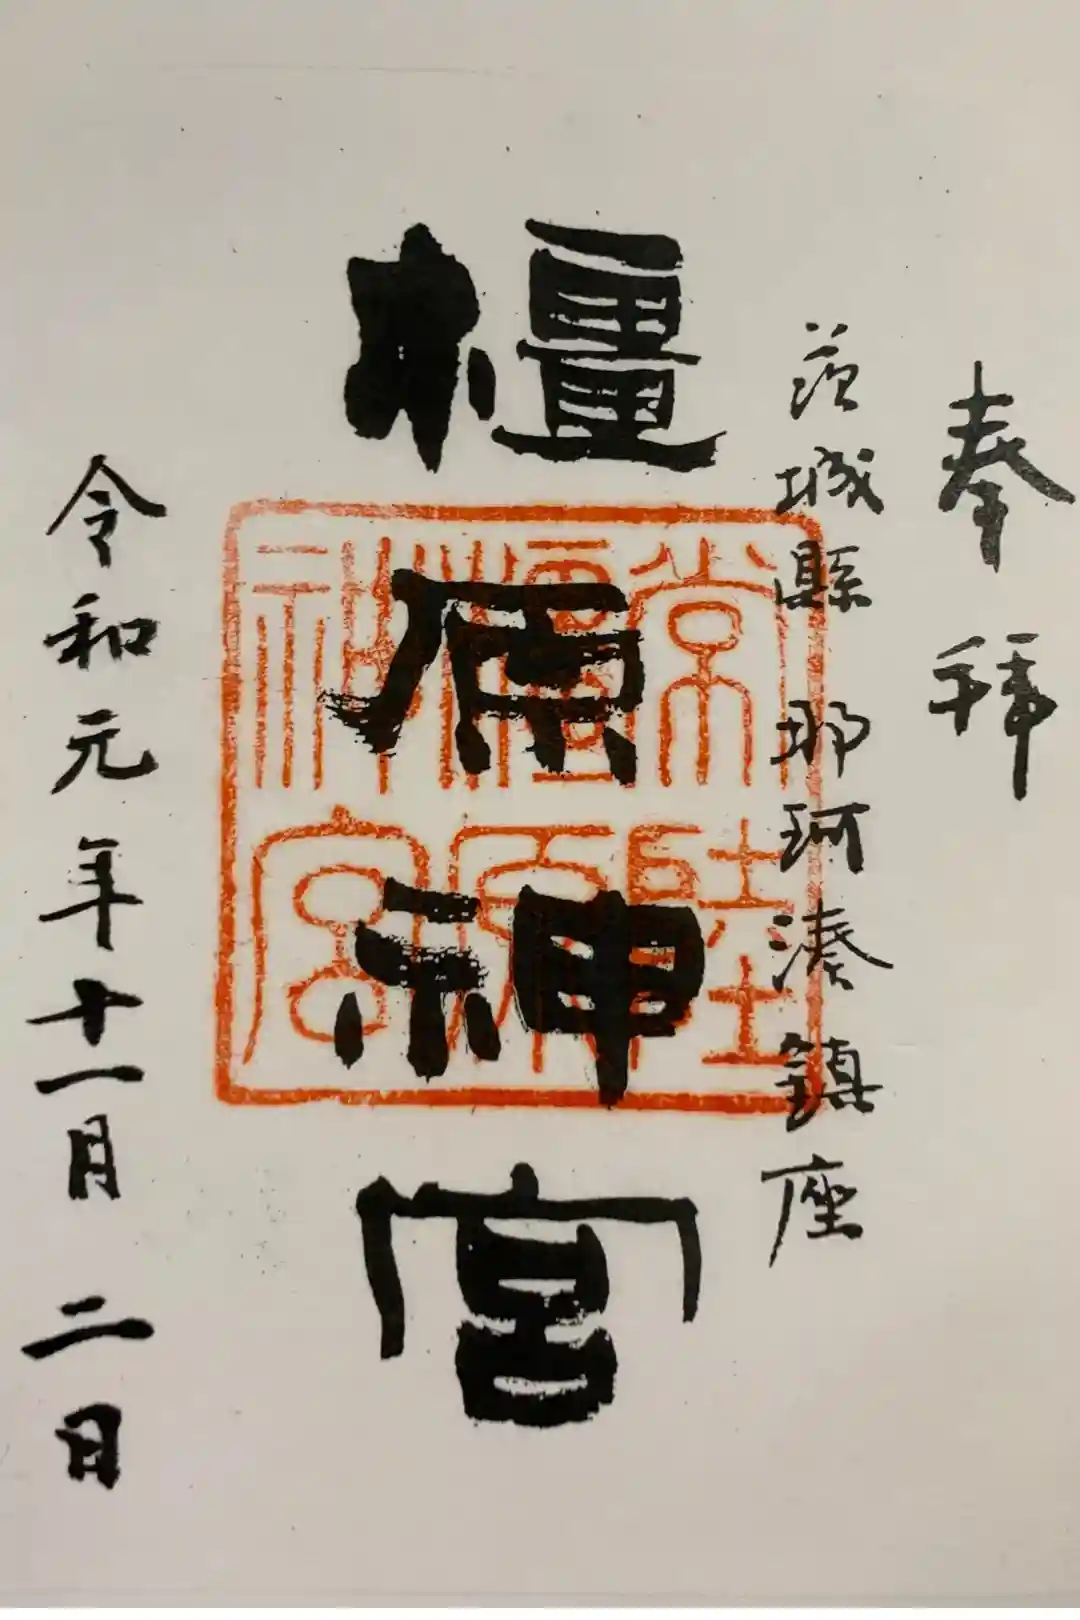 奉拜
茨城縣 那珂湊鎮座
橿原神宮
常陸
橿原
神宮
令和元年十一月二日